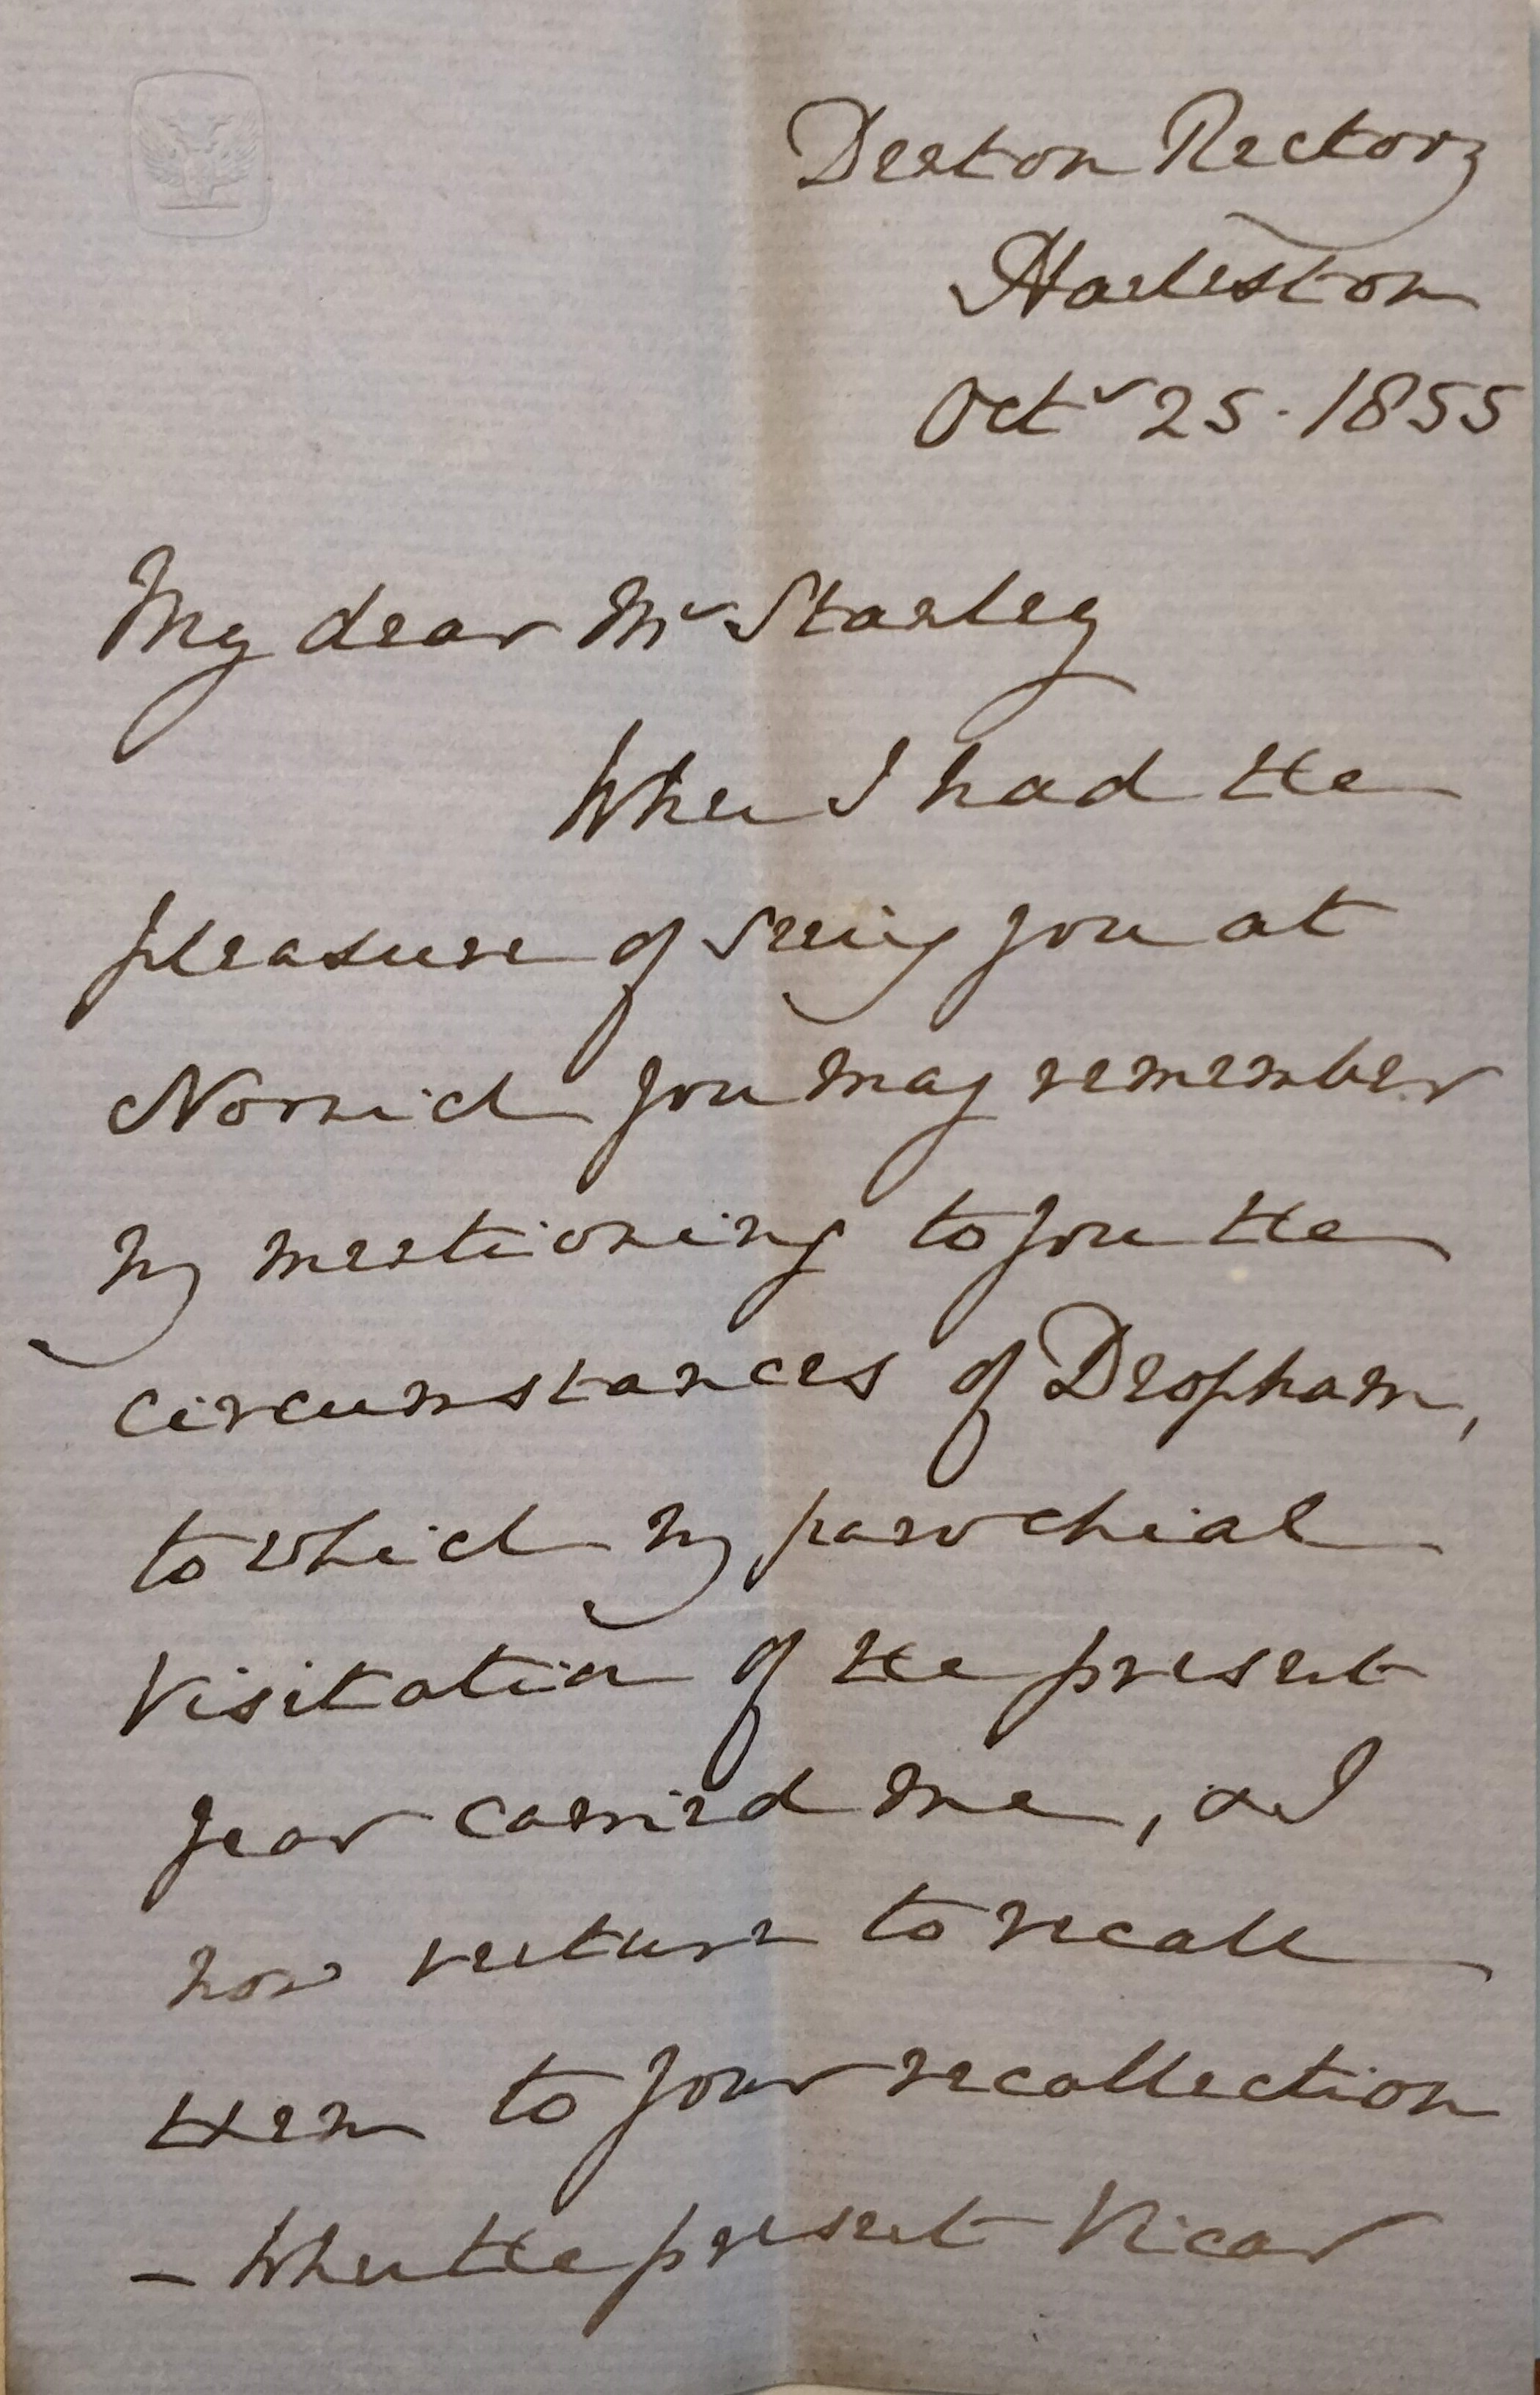 Denton Rectory
Harleston
Octr 25. 1855
My dear Mr Stanley
When I had the
pleasure of seeing you at
Norwich you may remember
my mentioning to you the
circumstances of Deopham,
to which my parochial
Visitation of the present
year carried me, & I
now venture to recall
them to your recollection
- When the present Vicar